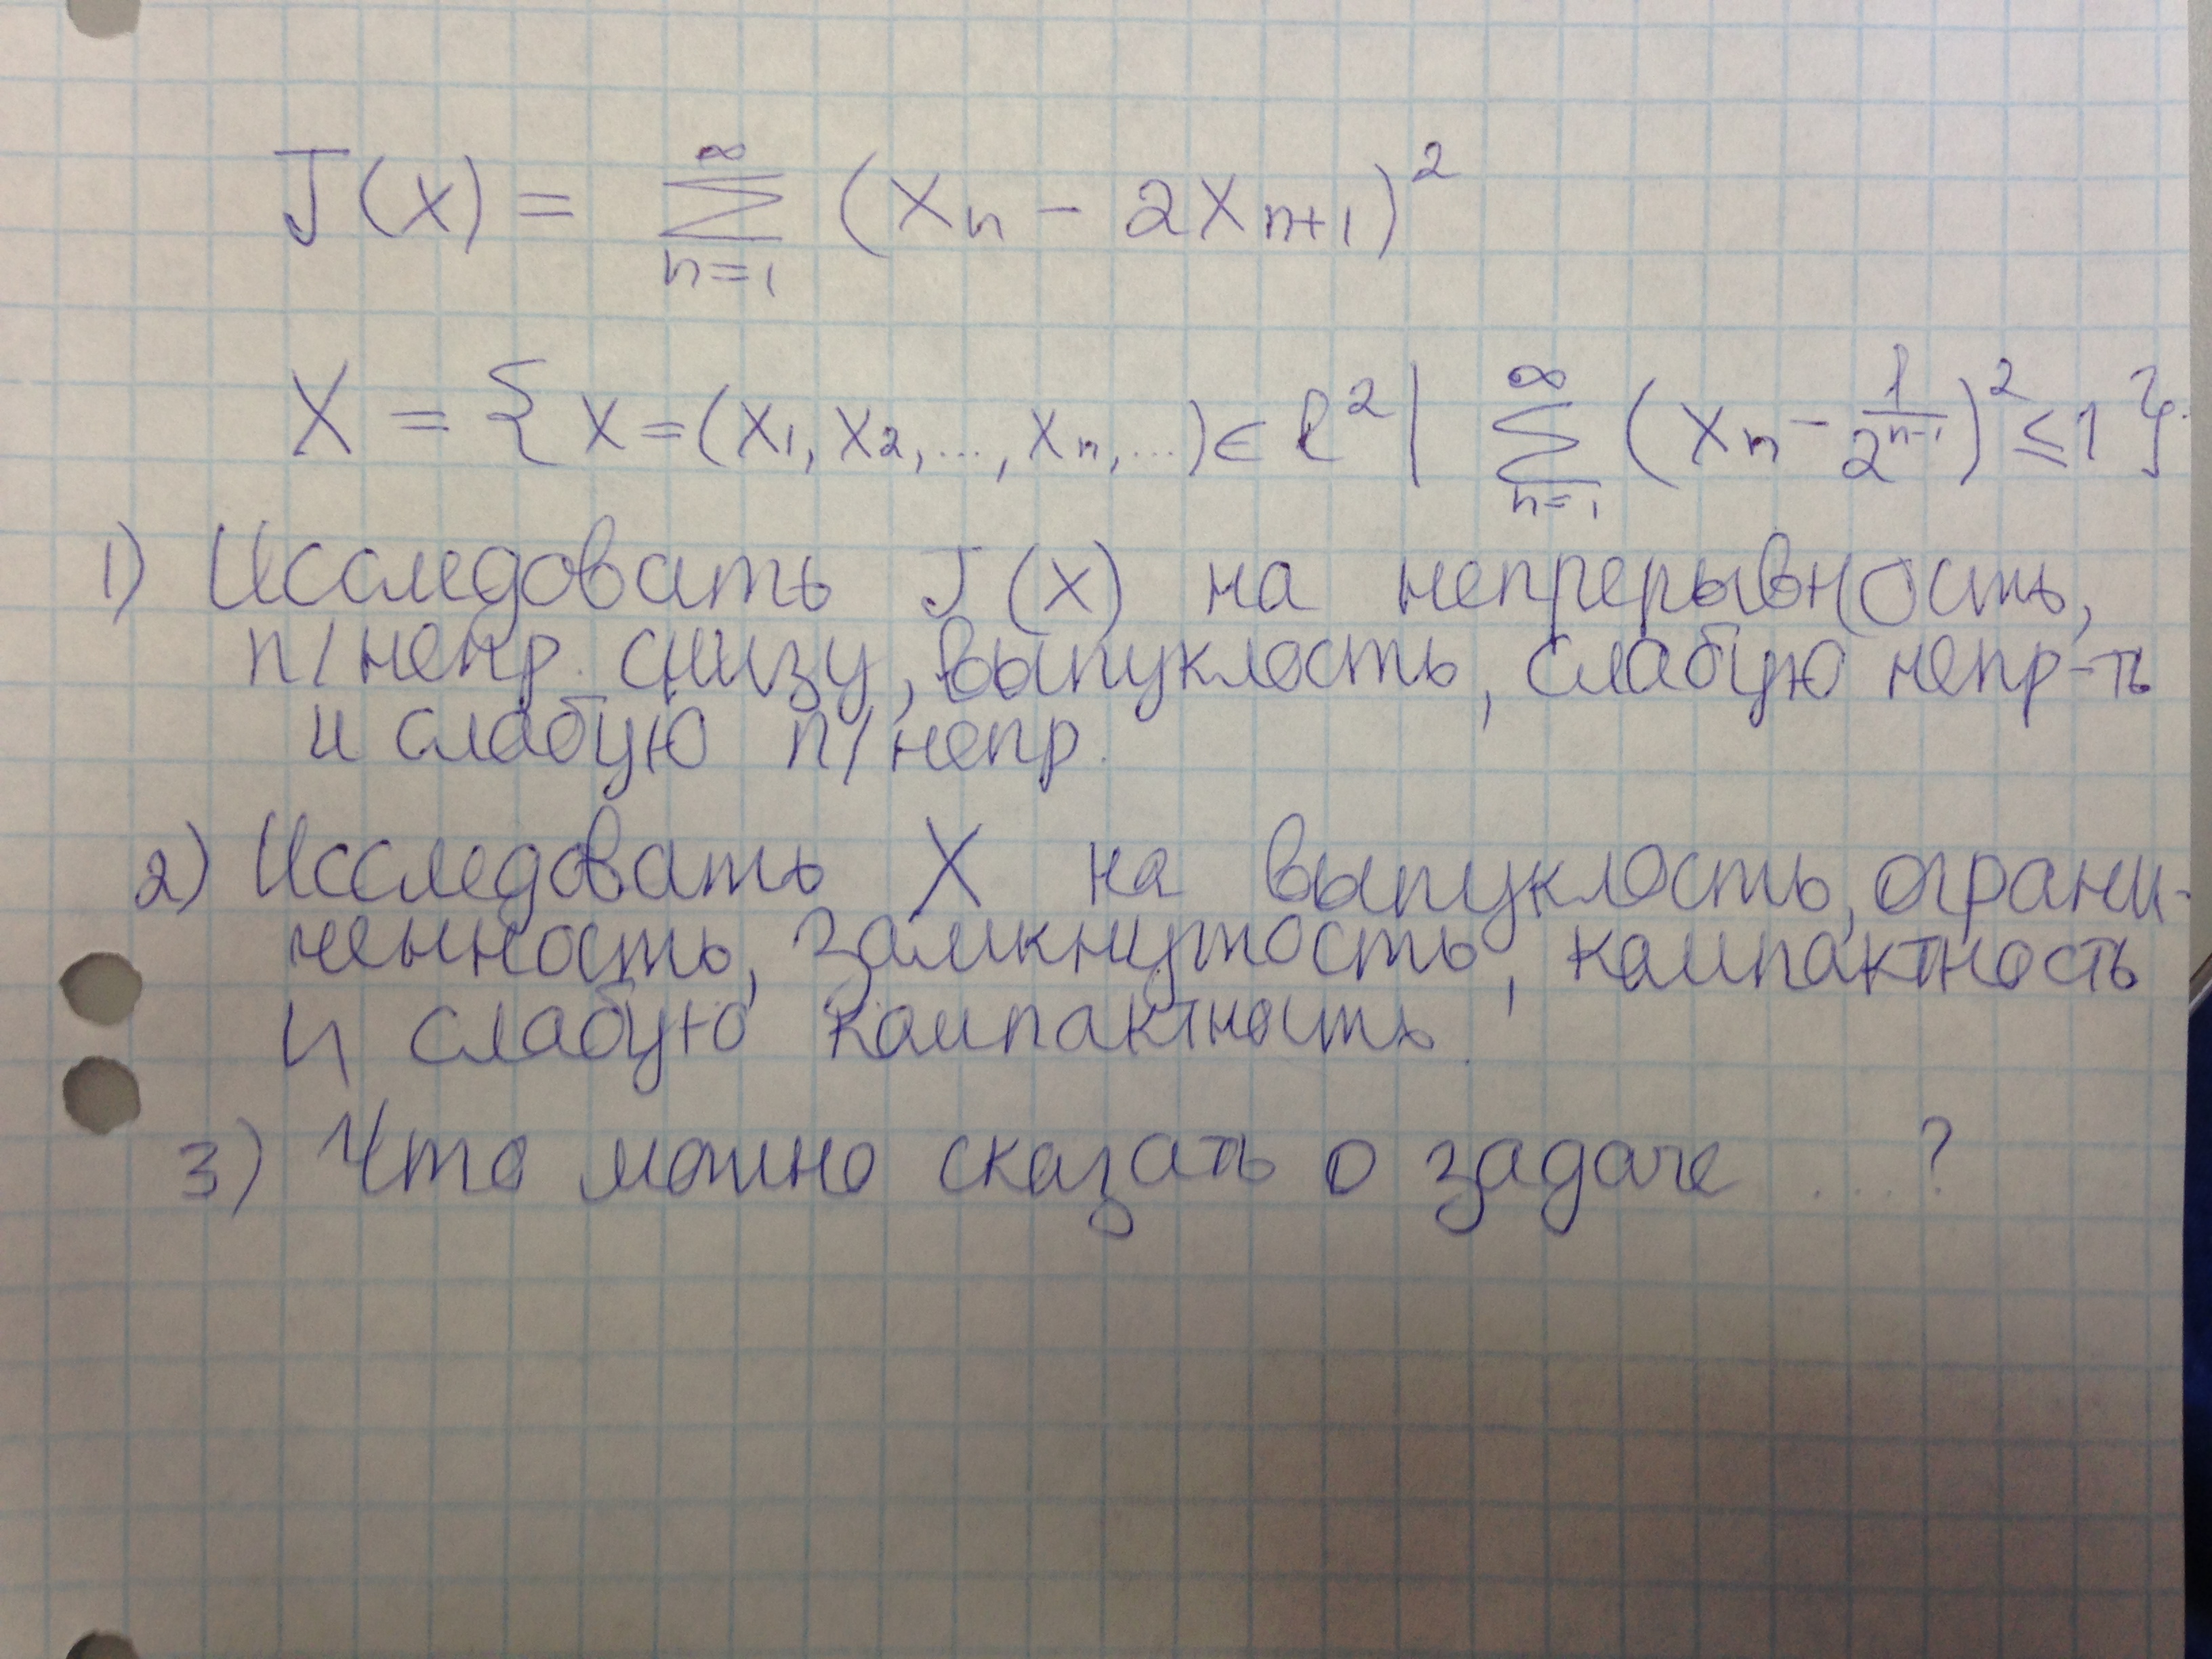 J(x) = ∑_{n=1}^{∞} (x_n - 2x_{n+1})^2
X = { x = (x_1, x_2, ..., x_n, ...) ∈ l^2 | ∑_{n=1}^{∞} (x_n - \frac{1}{2^{n-1}})^2 ≤ 1 }.
1) Исследовать J(x) на непрерывность,
п/непр. снизу, выпуклость, слабую непр-ть
и слабую п/непр.
2) Исследовать X на выпуклость, ограни-
ченность, замкнутость, компактность
и слабую компактность.
3) Что можно сказать о задаче ...?